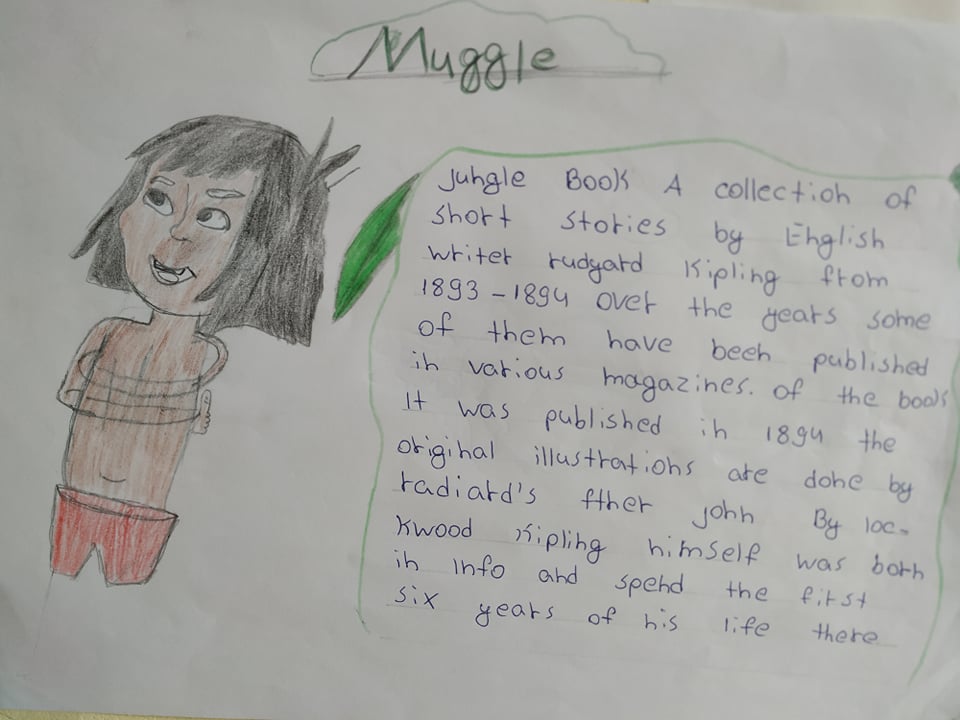 Muggle
Jungle Book A collection of
short stories by English
writer rudyard Kipling from
1893-1894 over the years some
of them have been published
in various magazines. of the book
It was published in 1894 the
original illustrations are done by
radiard's fther john By loc-
kwood Kipling himself was born
in Info and spend the first
six years of his life there